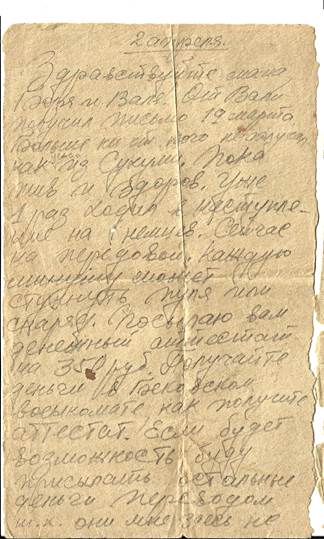 2 апреля.
Здравствуйте мама
Боря и Валя. От Вали
получил письмо 19 марта
больше ни от кого не получал
как из Сухуми. Пока
жив и здоров. Уже
1 раз ходил в наступле-
ние на немцев. Сейчас
на передовой. Каждую
минуту может
стукнуть пуля или
снаряд. Посылаю вам
денежный аттестат
на 350 руб. Получайте
деньги в
военкомате как получите
аттестат. Если будет
возможность буду
присылать остальные
деньги переводом
т.к. они мне здесь не